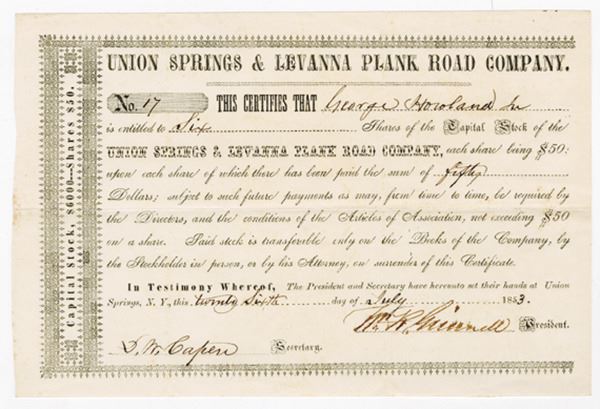 UNION SPRINGS & LEVANNA PLANK ROAD COMPANY.
No. 17 THIS CERTIFIES THAT George Howland
is entitled to Six Shares of the Capital Stock of the
UNION SPRINGS & LEVANNA PLANK ROAD COMPANY, each share being $50:
upon each share of which there has been paid the sum of fifty
Dollars; subject to such future payments as may, from time to time, be required by
the Directors, and the conditions of the Articles of Association, not exceeding $50
on a share. Paid stock is transferable only on the Books of the Company, by
the Stockholder in person, or by his Attorney, on surrender of this Certificate.
In Testimony Whereof, The President and Secretary have hereunto set their hands at Union
Springs, N. Y., this twenty Sixth day of July 1853.
President.
D. W. Capen Secretary.
Capital Stock, $6000—Shares $50.